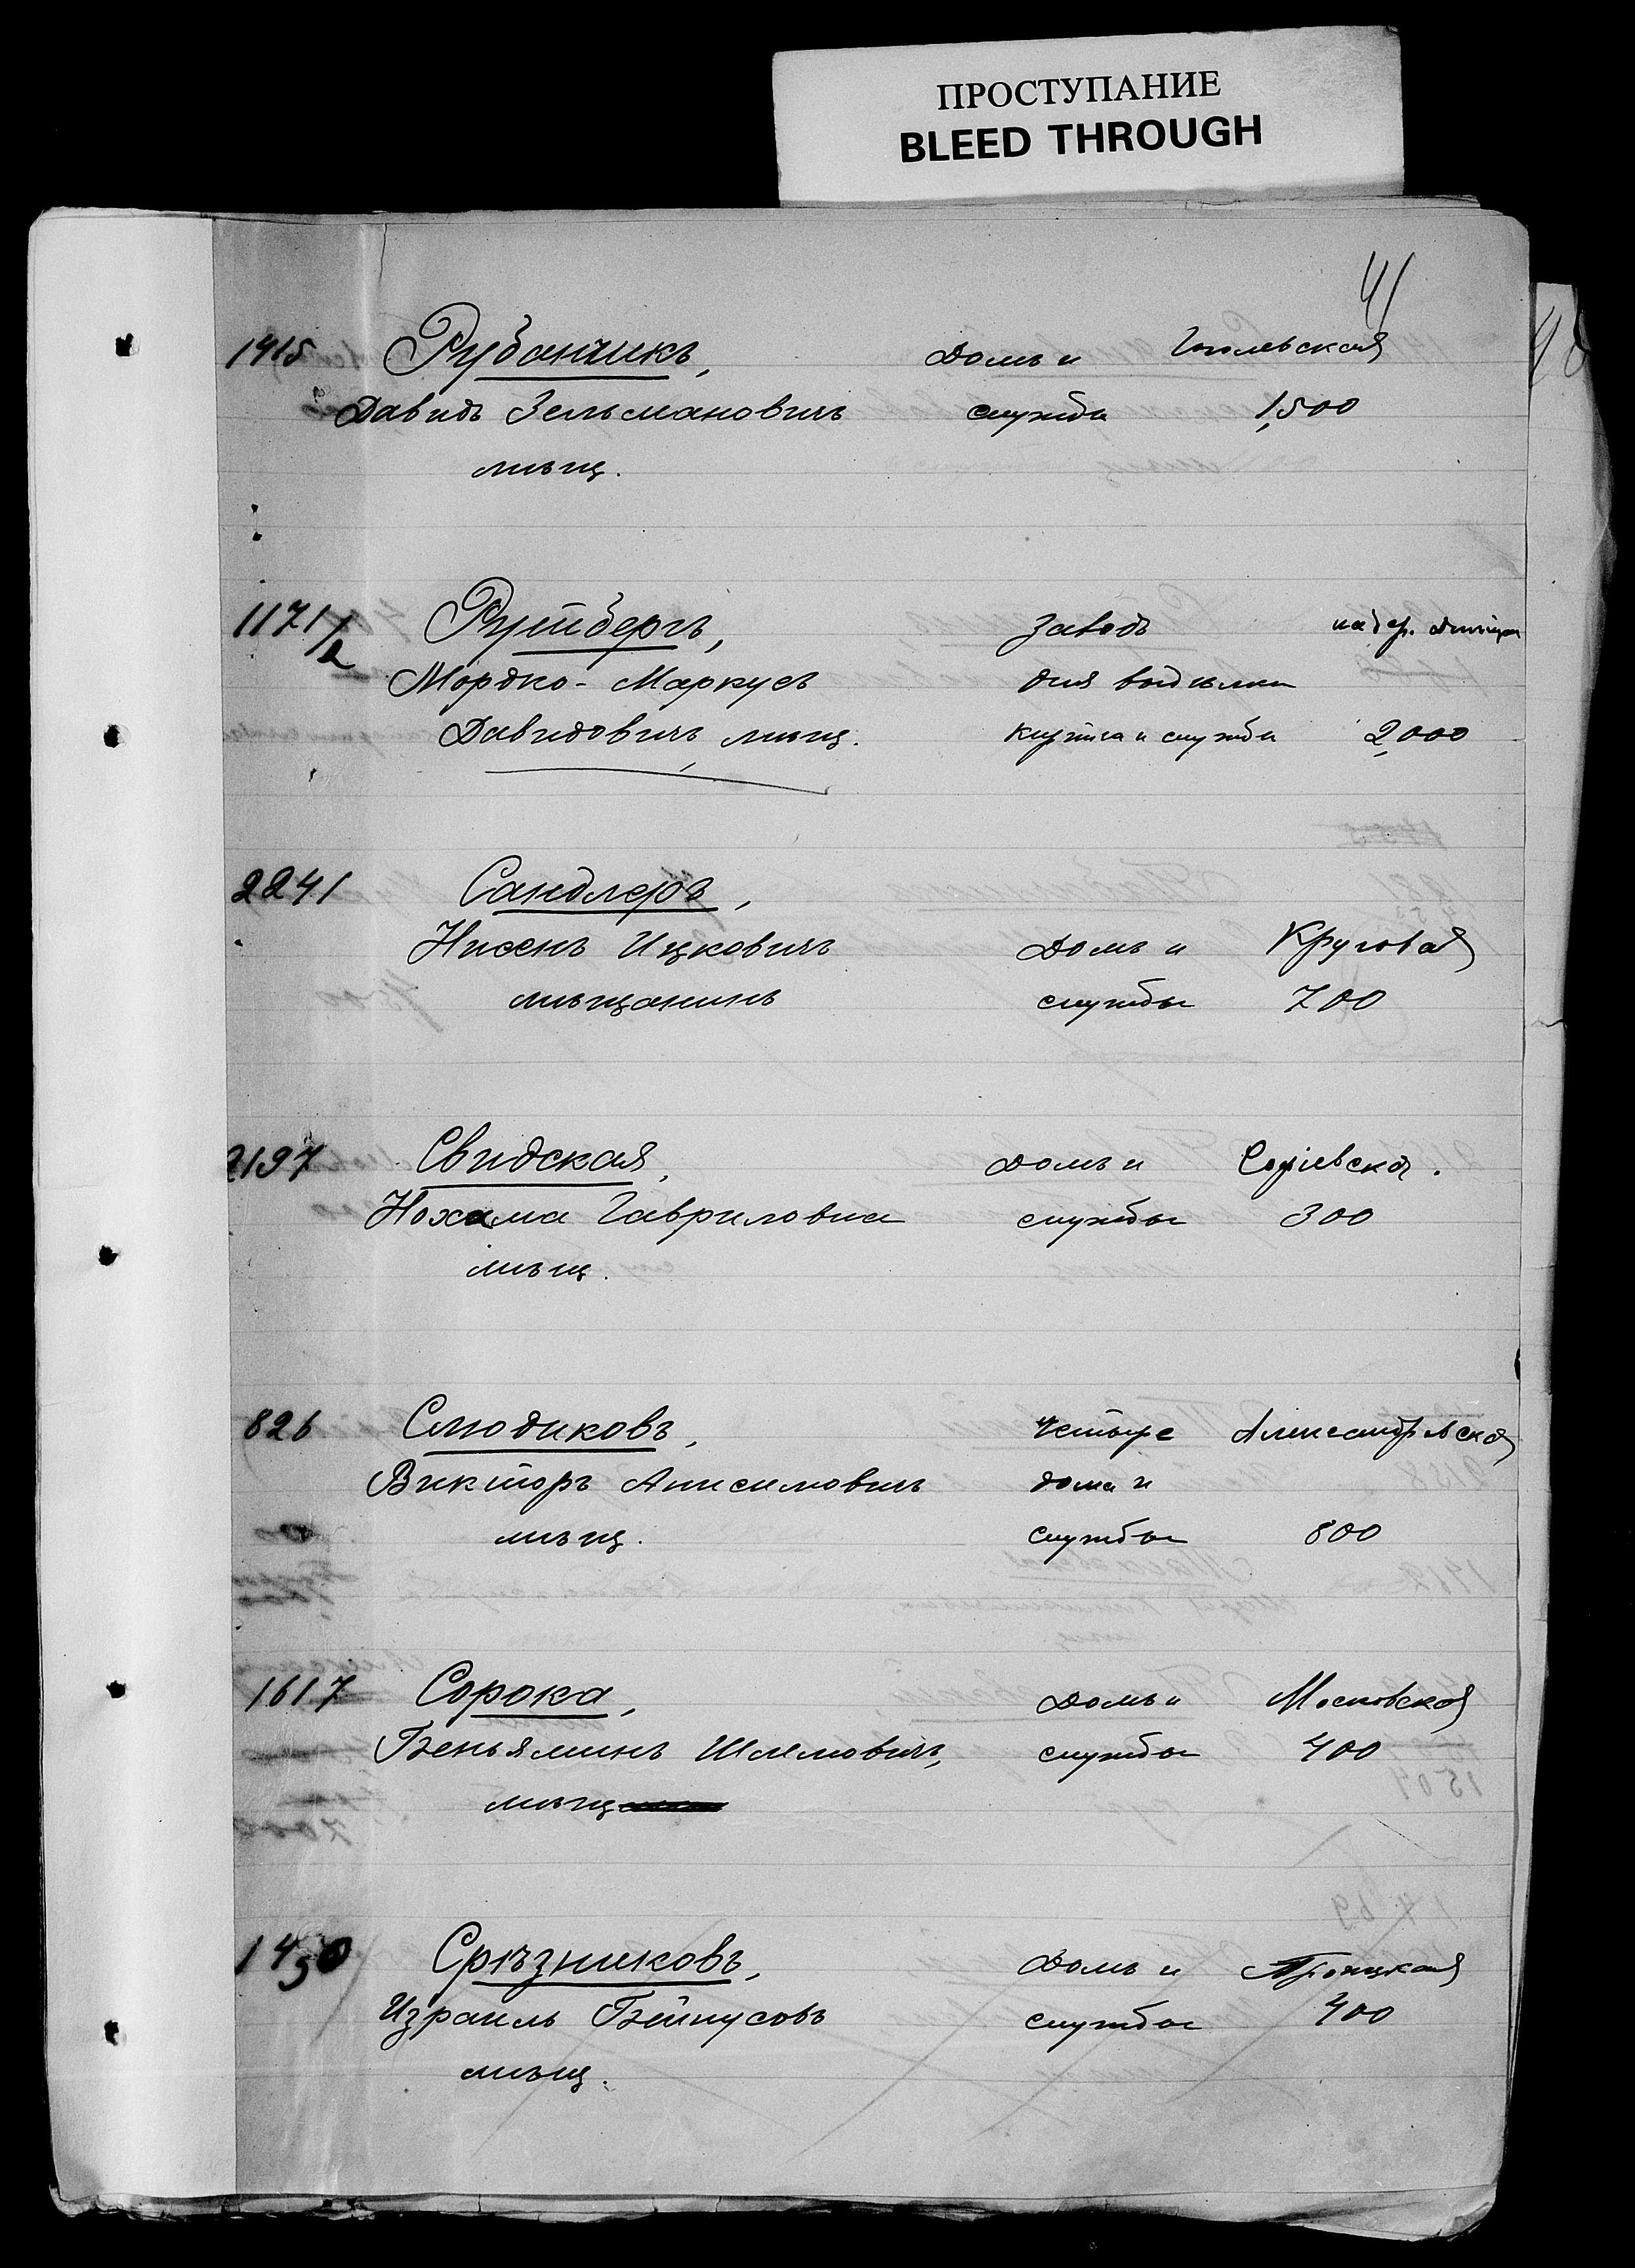 ПРОСТУПАНИЕ
BLEED THROUGH
41
1415 Рубанчикъ, Домъ и Гоголевская
Давидъ Зельмановичъ службы 1,500
мѣщ.
1171/2 Рутбергъ, Заводъ на бер. Днѣпра
Мордко-Маркусъ для выдѣлки
Давидовичъ, мѣщ. кирпича и службы 2,000
2241 Сандлеръ,
Нисенъ Ицковичъ Домъ и Круговая
мѣщанинъ службы 700
2197 Свидская, Домъ и Софіевская.
Нохама Гавриловна службы 300
мѣщ.
826 Слюдиковъ, Четыре Александровская
Викторъ Анисимовичъ дома и
мѣщ. службы 800
1617 Сорока, Домъ и Московская
Беньяминъ Шлемовичъ, службы 400
мѣщ
1450 Срѣзниковъ, Домъ и Троицкая
Израиль Бейнусовъ службы 400
мѣщ.